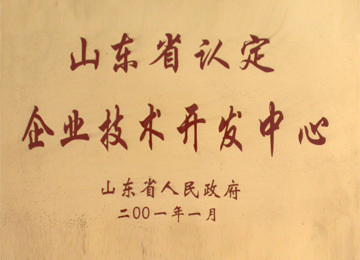 山东省认定
企业技术开发中心
山东省人民政府
二〇〇一年一月